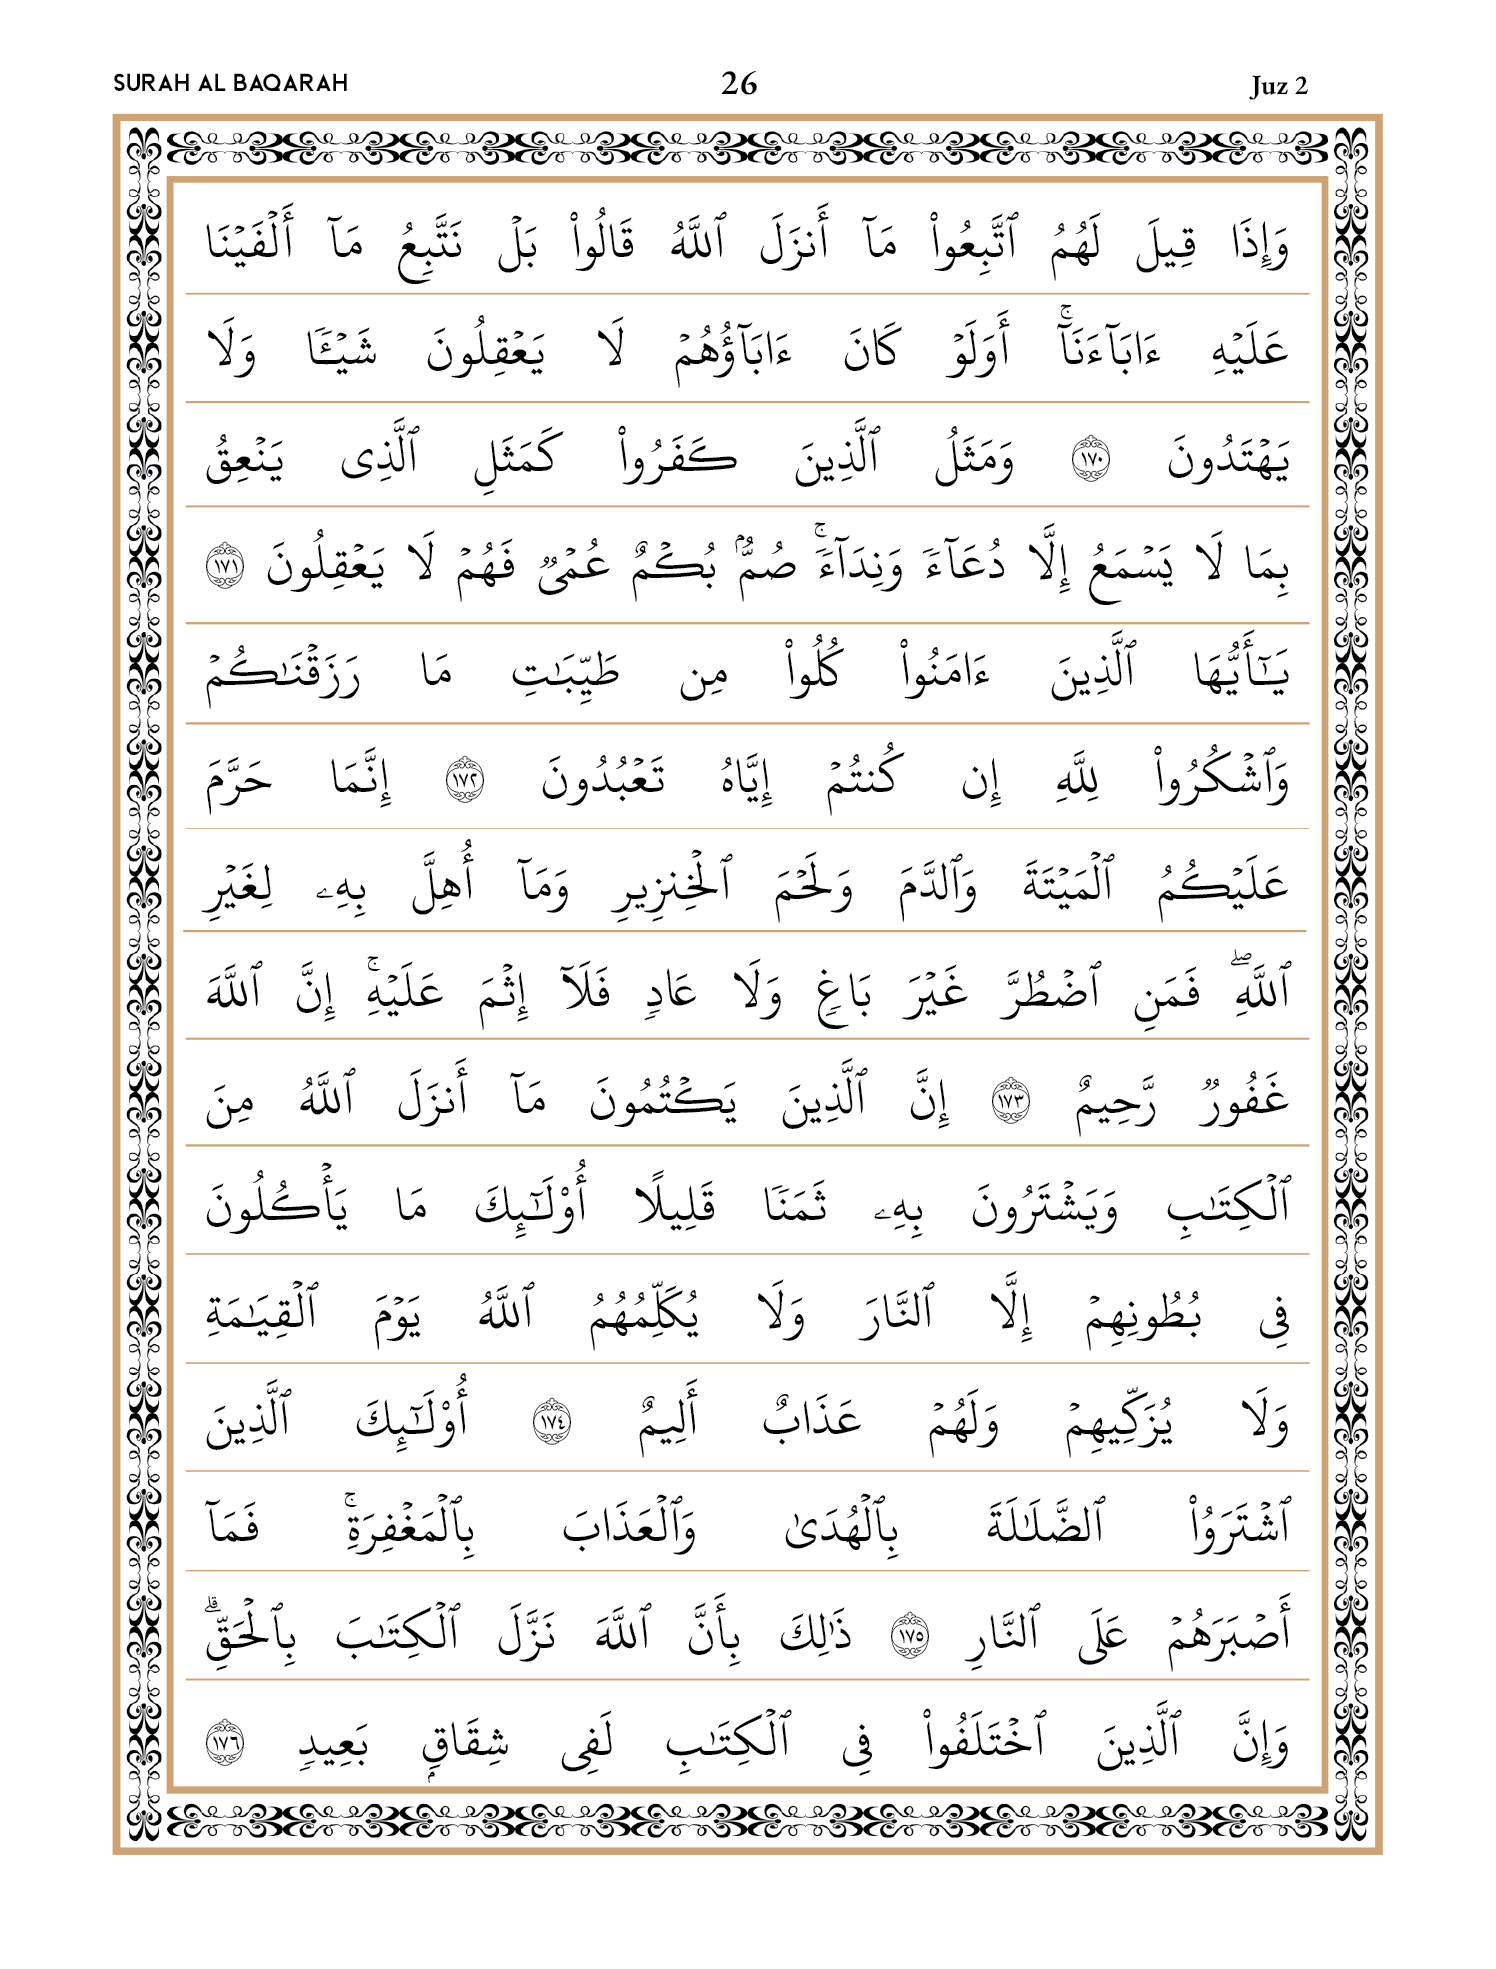 SURAH AL BAQARAH 26 Juz 2
وَإِذَا قِيلَ لَهُمُ ٱتَّبِعُوا۟ مَآ أَنزَلَ ٱللَّهُ قَالُوا۟ بَلْ نَتَّبِعُ مَآ أَلْفَيْنَا
عَلَيْهِ ءَابَآءَنَآ ۚ أَوَلَوْ كَانَ ءَابَآؤُهُمْ لَا يَعْقِلُونَ شَيْـًٔا وَلَا
يَهْتَدُونَ ١٧٠ وَمَثَلُ ٱلَّذِينَ كَفَرُوا۟ كَمَثَلِ ٱلَّذِى يَنْعِقُ
بِمَا لَا يَسْمَعُ إِلَّا دُعَآءً وَنِدَآءً ۚ صُمٌّۢ بُكْمٌ عُمْىٌ فَهُمْ لَا يَعْقِلُونَ ١٧١
يَـٰٓأَيُّهَا ٱلَّذِينَ ءَامَنُوا۟ كُلُوا۟ مِن طَيِّبَـٰتِ مَا رَزَقْنَـٰكُمْ
وَٱشْكُرُوا۟ لِلَّهِ إِن كُنتُمْ إِيَّاهُ تَعْبُدُونَ ١٧٢ إِنَّمَا حَرَّمَ
عَلَيْكُمُ ٱلْمَيْتَةَ وَٱلدَّمَ وَلَحْمَ ٱلْخِنزِيرِ وَمَآ أُهِلَّ بِهِۦ لِغَيْرِ
ٱللَّهِ ۖ فَمَنِ ٱضْطُرَّ غَيْرَ بَاغٍ وَلَا عَادٍ فَلَآ إِثْمَ عَلَيْهِ ۚ إِنَّ ٱللَّهَ
غَفُورٌ رَّحِيمٌ ١٧٣ إِنَّ ٱلَّذِينَ يَكْتُمُونَ مَآ أَنزَلَ ٱللَّهُ مِنَ
ٱلْكِتَـٰبِ وَيَشْتَرُونَ بِهِۦ ثَمَنًا قَلِيلًا أُو۟لَـٰٓئِكَ مَا يَأْكُلُونَ
فِى بُطُونِهِمْ إِلَّا ٱلنَّارَ وَلَا يُكَلِّمُهُمُ ٱللَّهُ يَوْمَ ٱلْقِيَـٰمَةِ
وَلَا يُزَكِّيهِمْ وَلَهُمْ عَذَابٌ أَلِيمٌ ١٧٤ أُو۟لَـٰٓئِكَ ٱلَّذِينَ
ٱشْتَرَوُا۟ ٱلضَّلَـٰلَةَ بِٱلْهُدَىٰ وَٱلْعَذَابَ بِٱلْمَغْفِرَةِ ۚ فَمَآ
أَصْبَرَهُمْ عَلَى ٱلنَّارِ ١٧٥ ذَٰلِكَ بِأَنَّ ٱللَّهَ نَزَّلَ ٱلْكِتَـٰبَ بِٱلْحَقِّ ۗ
وَإِنَّ ٱلَّذِينَ ٱخْتَلَفُوا۟ فِى ٱلْكِتَـٰبِ لَفِى شِقَاقٍۭ بَعِيدٍ ١٧٦